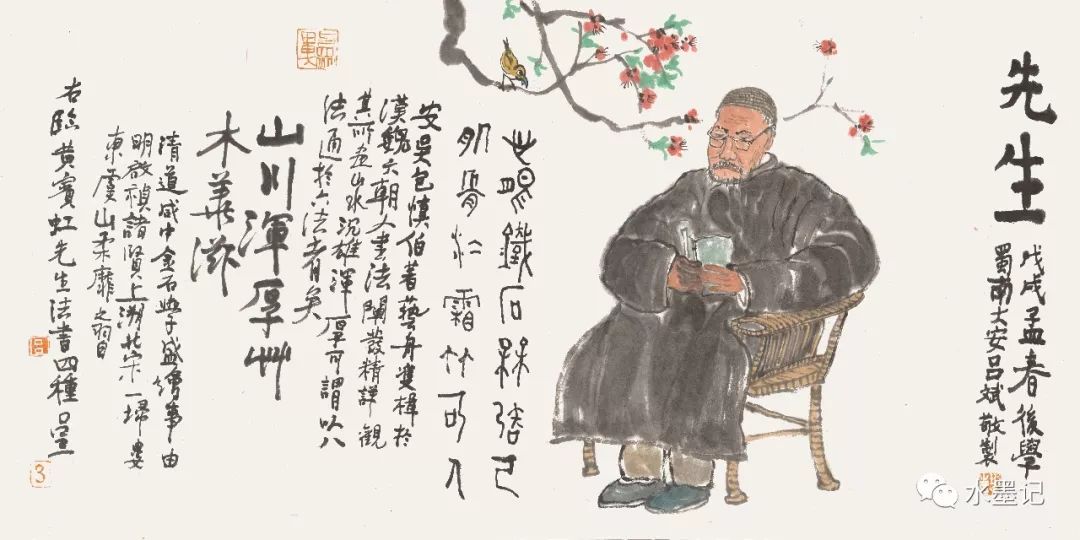 先生
戊戌孟春後學
蜀南大安吕斌敬製
鐵石
霜竹可人
安吴包慎伯著藝舟雙楫於
漢魏六朝人書法闡發精詳觀
其所画山水沉雄渾厚可謂以八
法通於六法者矣
山川渾厚艸
木華滋
清道咸中金石學盛繪事由
明啟禎諸賢上溯北宋一掃婁
東虞山柔靡之習
右臨黄賓虹先生法書四種
水墨记